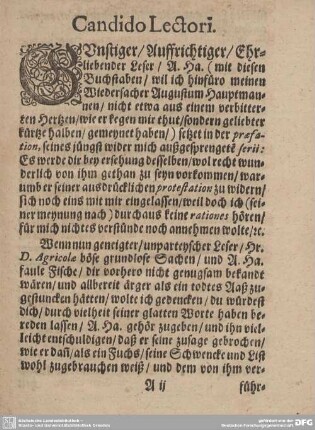 Candido Lectori.
GUnstiger/ Auffrichtiger/ Ehr-
liebender Leser/ A. Ha. (mit diesen
Buchstaben/ wil ich hinfüro meinen
Wiedersacher Augustum Hauptman-
nen/ nicht etwa aus einem verbitter-
ten Hertzen/ wie er kegen mir thut/ sondern geliebter
kürtze halben/ gemeynet haben/) setzt in der præfa-
tion, seines jüngst wider mich außgesprengetẽ serii:
Es werde dir bey ersehung desselben/ wol recht wun-
derlich von ihm gethan zu seyn vorkommen/ war-
umb er seiner ausdrücklichen protestation zu widern/
sich noch eins mit mir eingelassen/ weil doch ich (sei-
ner meynung nach) durchaus keine rationes hören/
für mich nichtes verstünde noch annehmen wolte/ ꝛc.
Wenn nun geneigter/ unpartheyscher Leser/ Hr.
D. Agricolæ böse grundlose Sachen/ und A. Ha.
faule Fische/ dir vorhero nicht genugsam bekandt
wären/ und allbereit ärger als ein todtes Aaß zu-
gestuncken hätten/ wolte ich gedencken/ du würdest
dich/ durch vielheit seiner glatten Worte haben be-
reden lassen/ A. Ha. gehör zugeben/ und ihn viel-
leicht entschuldigen/ daß er seine zusage gebrochen/
wie er dañ/ als ein Fuchs/ seine Schwencke und List
wohl zugebrauchen weiß/ und dem von ihm ver-
A ij führ-